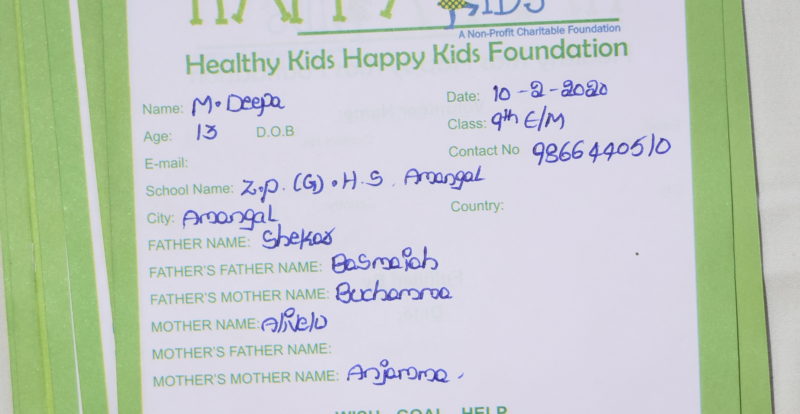 HAPPY KIDS
A Non-Profit Charitable Foundation
Healthy Kids Happy Kids Foundation
Name: M. Deepa Date: 10-2-2020
Age: 13 D.O.B Class: 9th E/M
E-mail: Contact No 9866440510
School Name: Z.P.(G).H.S. Amangal
City: Amangal Country:
FATHER NAME: Shekar
FATHER'S FATHER NAME: Basmaiah
FATHER'S MOTHER NAME: Buchamma
MOTHER NAME: Alivelu
MOTHER'S FATHER NAME:
MOTHER'S MOTHER NAME: Anjamma.
WISH GOAL HELP